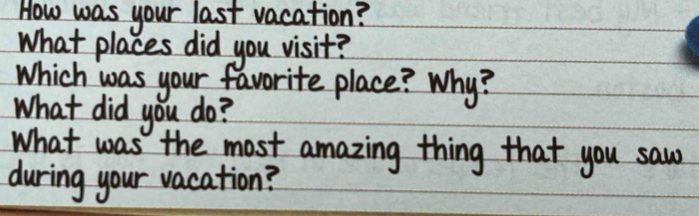 How was your last vacation?
What places did you visit?
Which was your favorite place? Why?
What did you do?
What was the most amazing thing that you saw
during your vacation?